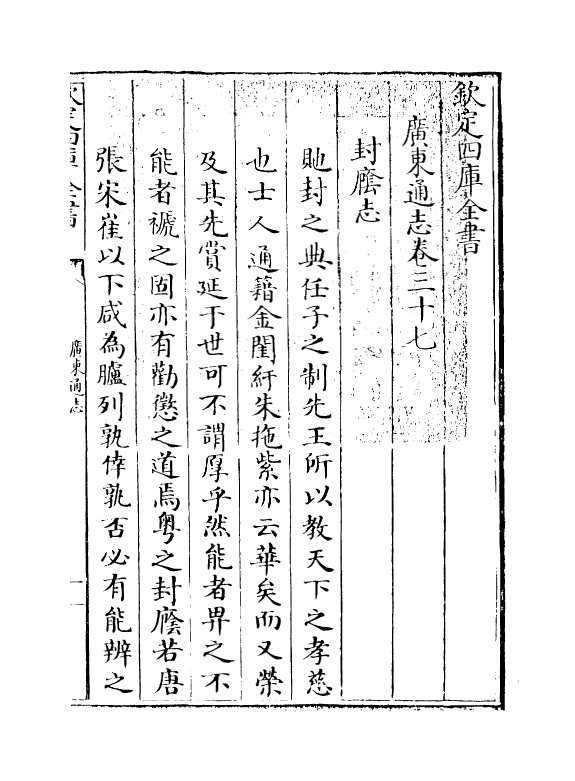 欽定四庫全書
廣東通志卷三十七
封廕志
貤封之典任子之制先王所以教天下之孝慈
也士人通籍金閨紆朱拖紫亦云華矣而又榮
及其先賞延于世可不謂厚乎然能者畀之不
能者褫之固亦有勸懲之道焉粤之封廕若唐
張宋崔以下咸為臚列孰倖孰否必有能辨之
廣東通志